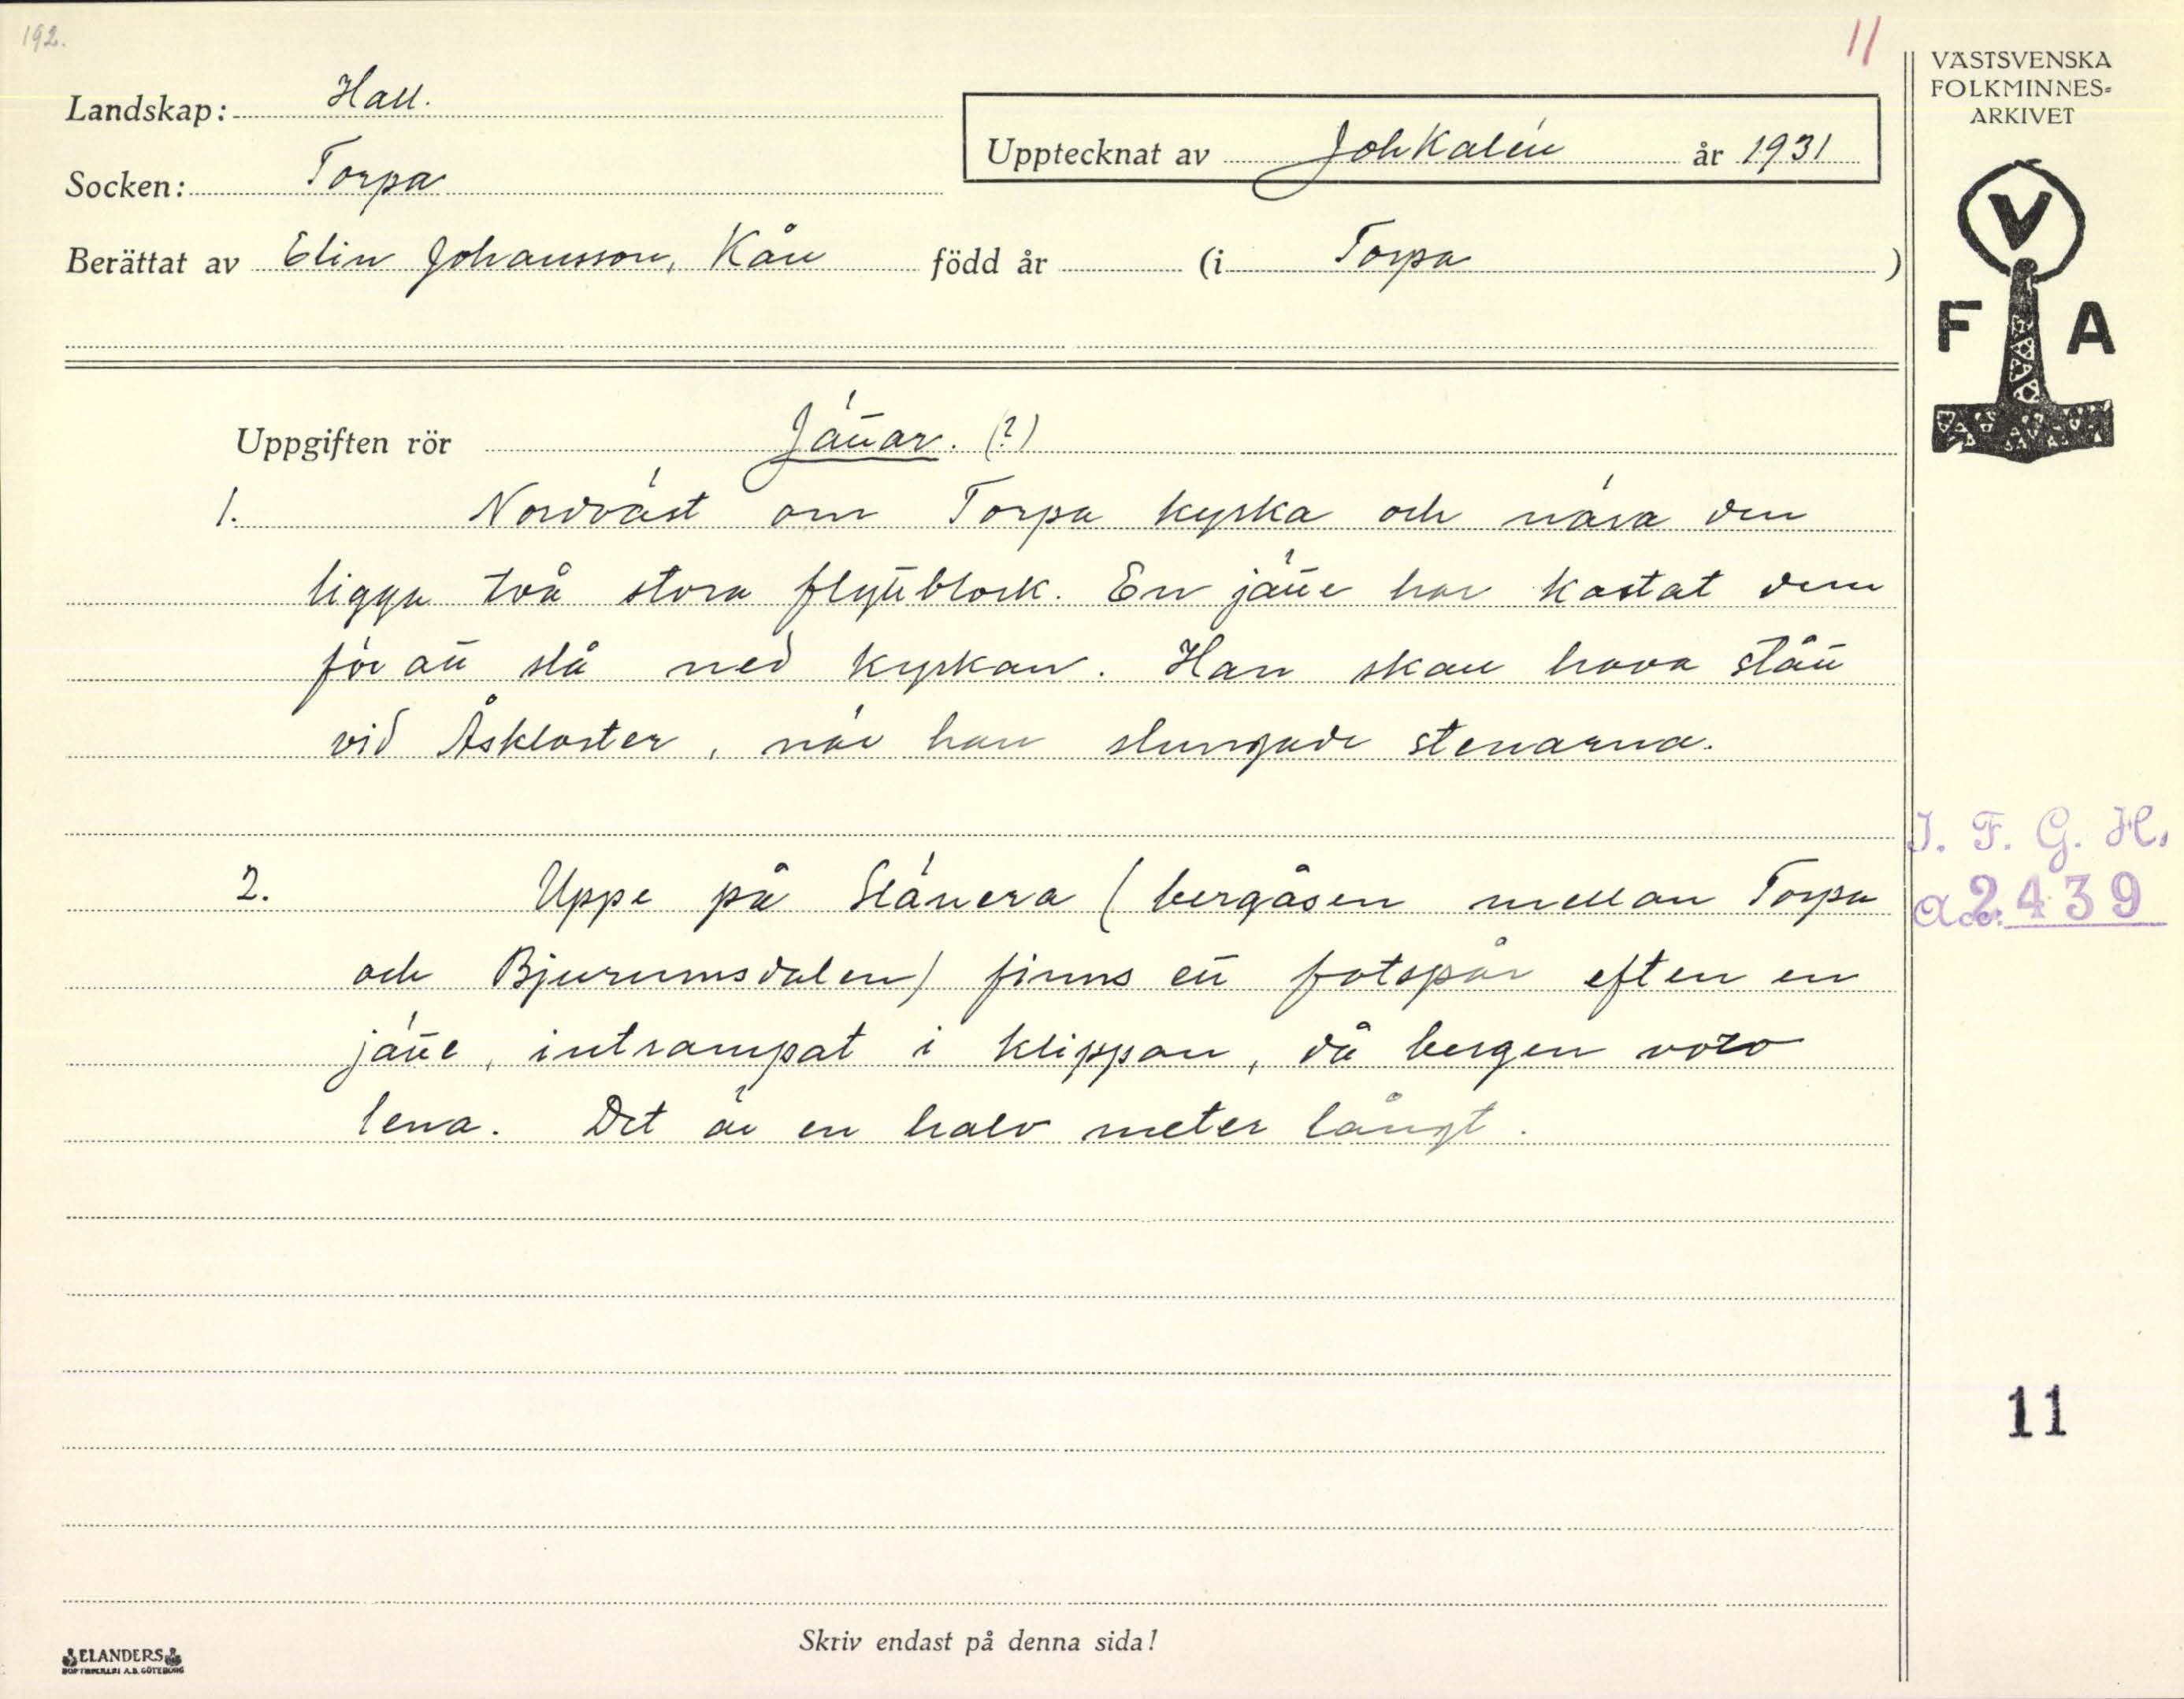 192.
11
VÄSTSVENSKA
FOLKMINNES=
ARKIVET
Landskap: Hall.
Upptecknat av Joh Kalén år 1931
Socken: Torpa
Berättat av Elin Johansson, Kåll född år (i Torpa )
V
F A
Uppgiften rör Jättar. (?)
1. Nordväst om Torpa kyrka och nära den
ligga två stora flyttblock. En jätte har kastat dem
för att slå ned kyrkan. Han skall hava stått
vid Åskloster, när han slungade stenarna.
I. F. G. H.
2. Uppe på Slänera (bergåsen mellan Torpa
Acc: 2439
och Bjurumsdalen) finns ett fotspår efter en
jätte, intrampat i klippan, då bergen voro
lena. Det är en halv meter långt.
11
Skriv endast på denna sida!
ELANDERS
BOKTRYCKERI A.B. GÖTEBORG